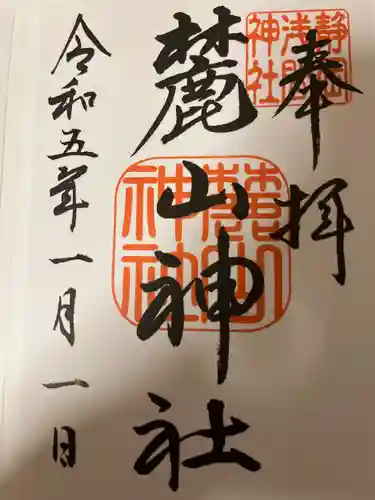 奉拝
静岡
浅間
神社
麓山神社
麓山
神社
令和五年一月一日